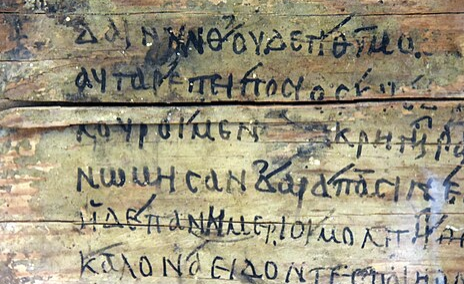 ΔΑΙΝΥΝΘΟΥΔΕΤΙΘΥΜΟ
ΑΥΤΑΡΕΠΕΙΠΟCΙΟC
ΚΟΥΡΟΙΜΕΝ ΚΡΗΤΗΡΑ
ΝΩΜΗCΑΝΔΑΡΑΠΑCΙΝΕ
ΟΙΔΕΠΑΝΗΜΕΡΙΟΙΜΟΛΠΗ
ΚΑΛΟΝΑΕΙΔΟΝΤΕC